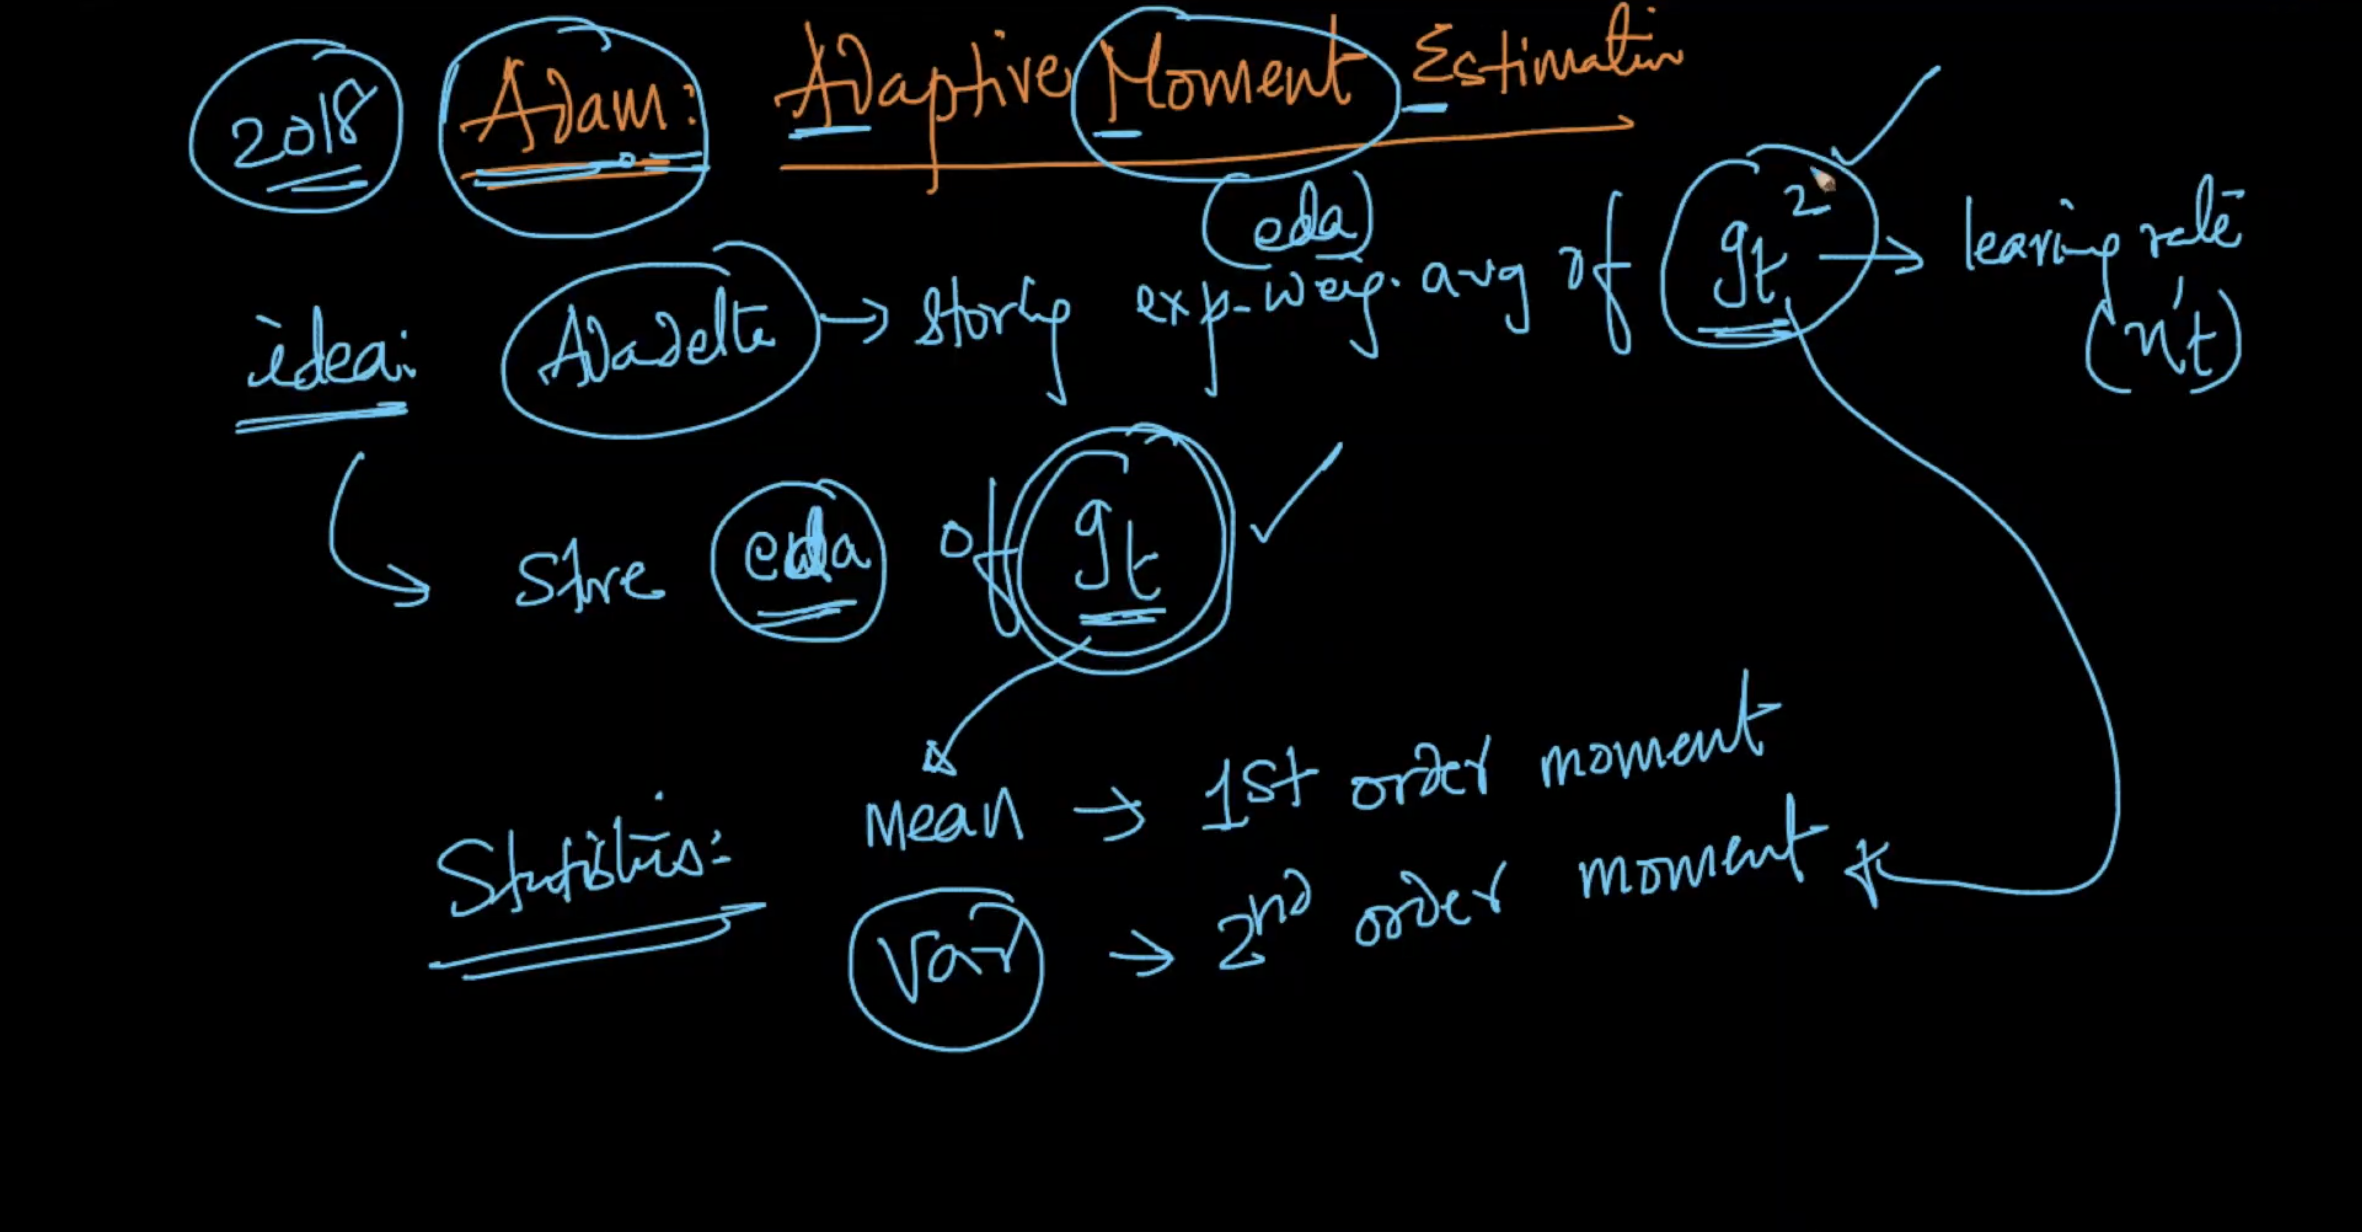 2018 Adam: Adaptive Moment Estimation
(eda)
idea: Adadelta → storing exp-weig. avg of gt² → learning rate
(η't)
Store eda of gt ✓
Mean → 1st order moment
Statistics:
Var → 2nd order moment